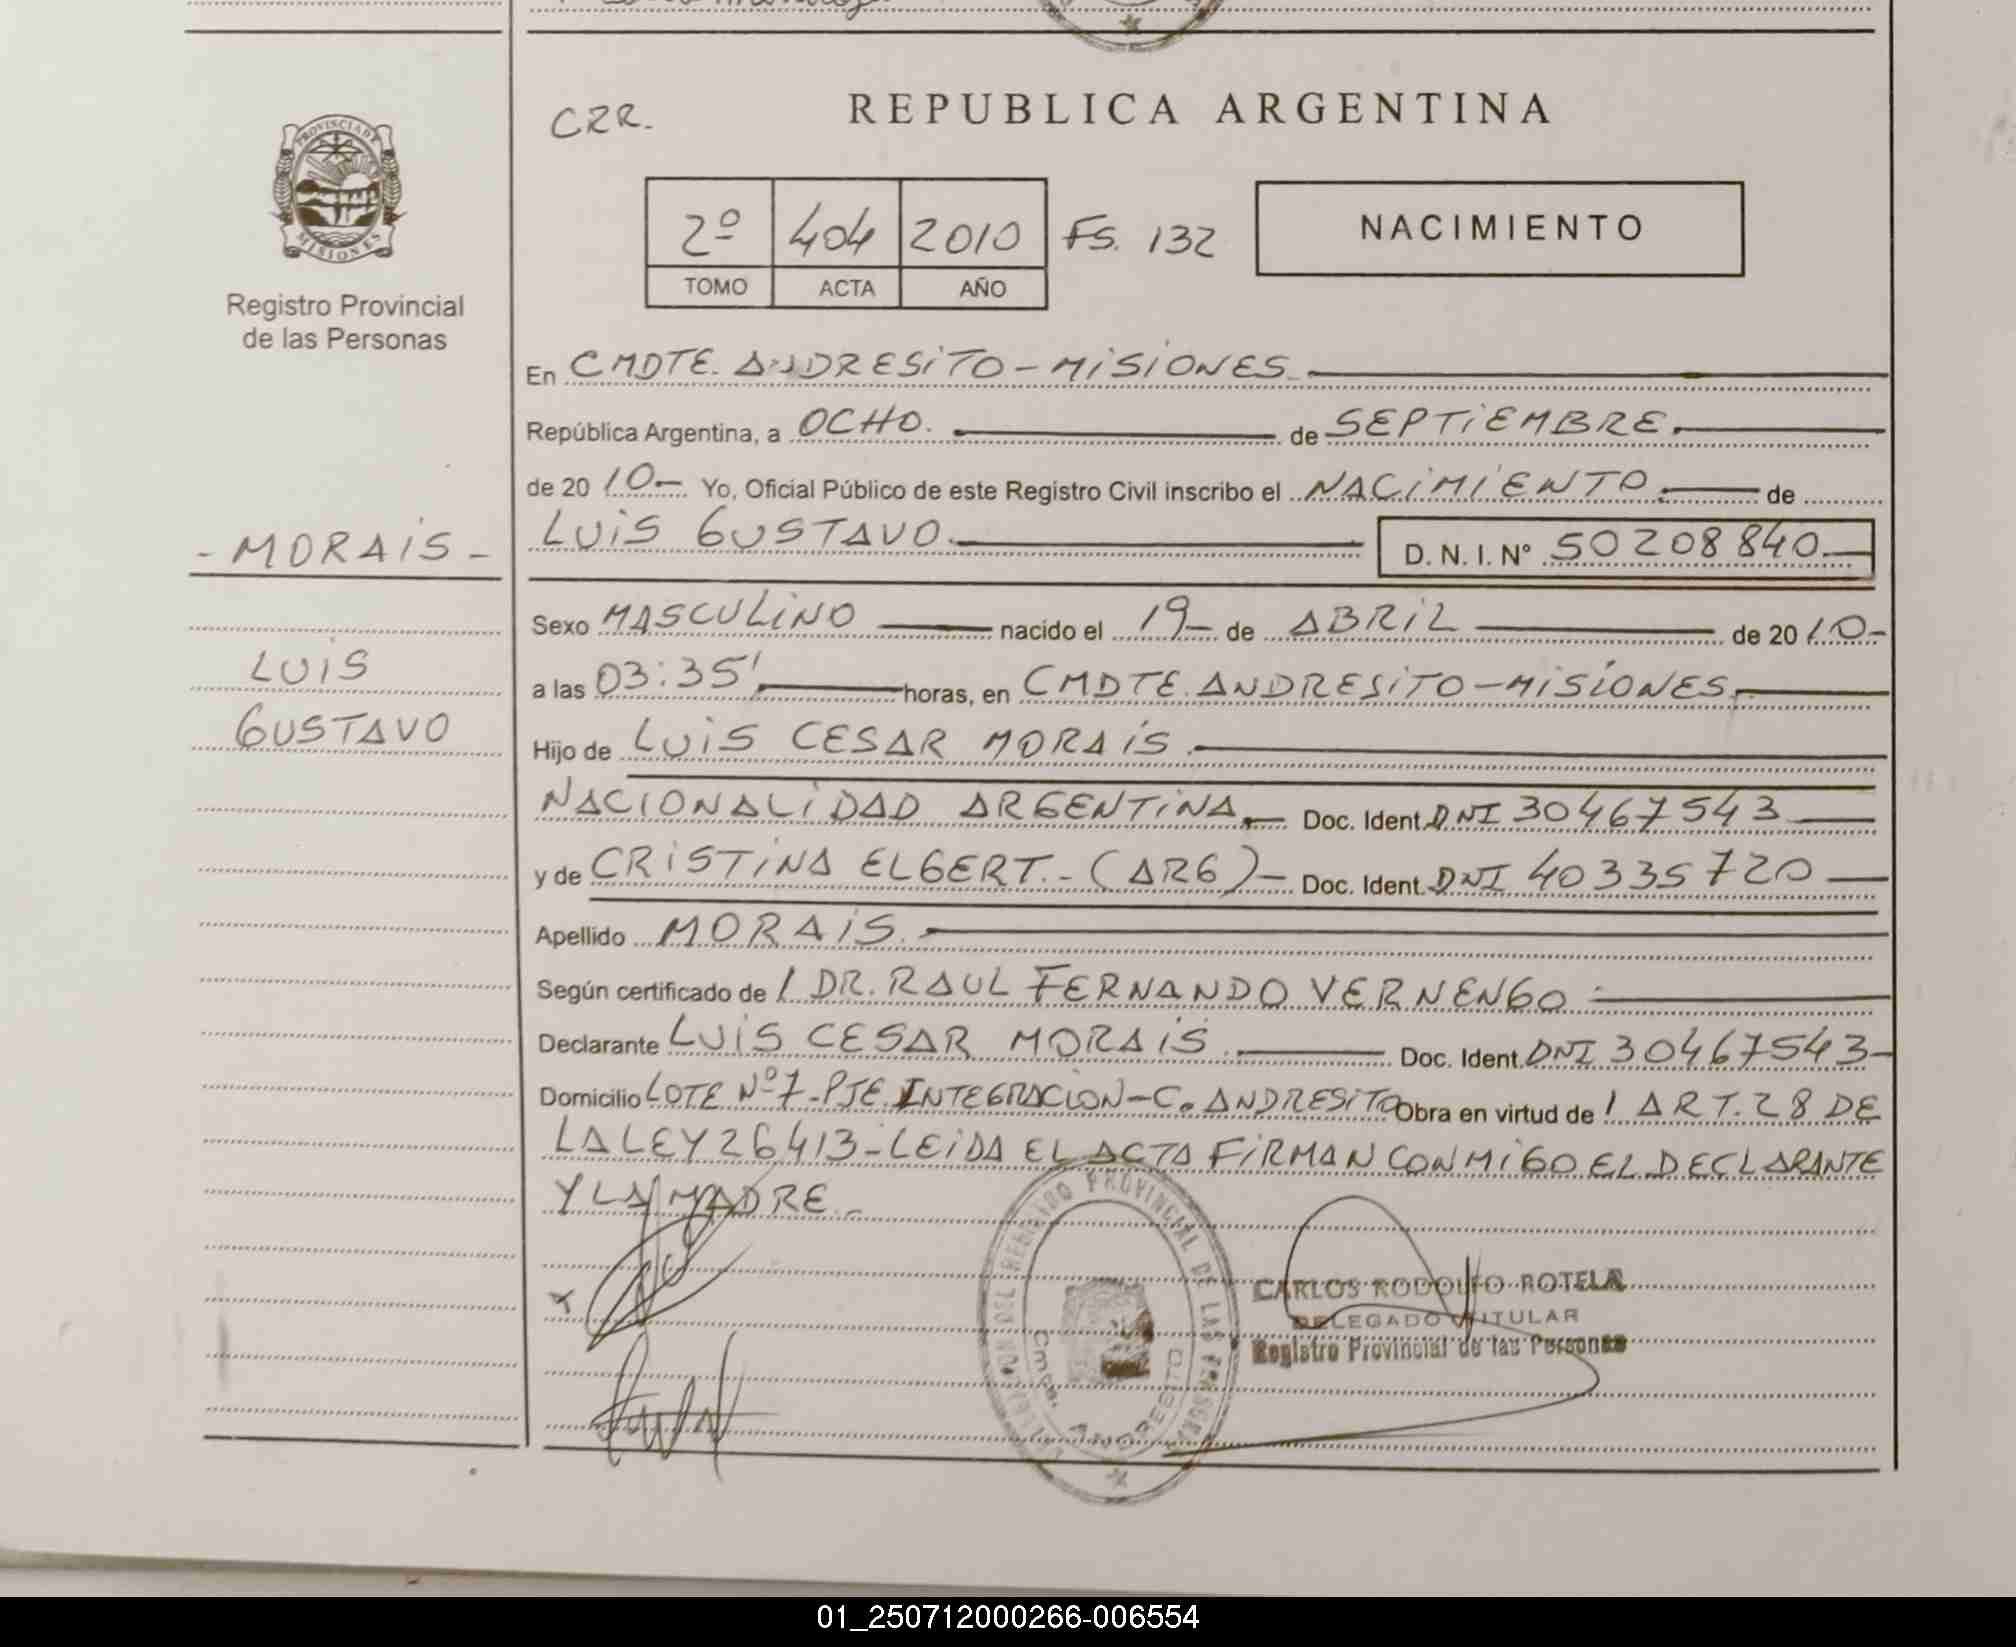 CRR.
REPUBLICA ARGENTINA
PROVINCIA DE
MISIONES
2º 404 2010 FS. 132
NACIMIENTO
TOMO ACTA AÑO
Registro Provincial
de las Personas
En CMDTE. ANDRESITO - MISIONES.
República Argentina, a OCHO. de SEPTIEMBRE.
de 2010- Yo, Oficial Público de este Registro Civil inscribo el NACIMIENTO. de
- MORAIS -
LUIS GUSTAVO. D. N. I. Nº 50208840.
Sexo MASCULINO nacido el 19- de ABRIL de 2010-
LUIS
a las 03:35' horas, en CMDTE. ANDRESITO - MISIONES.
GUSTAVO
Hijo de LUIS CESAR MORAIS.
NACIONALIDAD ARGENTINA. Doc. Ident. DNI 30467543
y de CRISTINA ELGERT. - (ARG) - Doc. Ident. DNI 40335720
Apellido MORAIS.
Según certificado de / DR. RAUL FERNANDO VERNENGO.
Declarante LUIS CESAR MORAIS. Doc. Ident. DNI 30467543-
Domicilio LOTE Nº 7 - PJE. INTEGRACION - C. ANDRESITO Obra en virtud de / ART. 28 DE
LA LEY 26413 - LEIDA EL ACTA FIRMAN CONMIGO EL DECLARANTE
Y LA MADRE. -
REGISTRO PROVINCIAL DE LAS PERSONAS
ANDRESITO
CARLOS RODOLFO ROTELA
DELEGADO TITULAR
Registro Provincial de las Personas
01_250712000266-006554